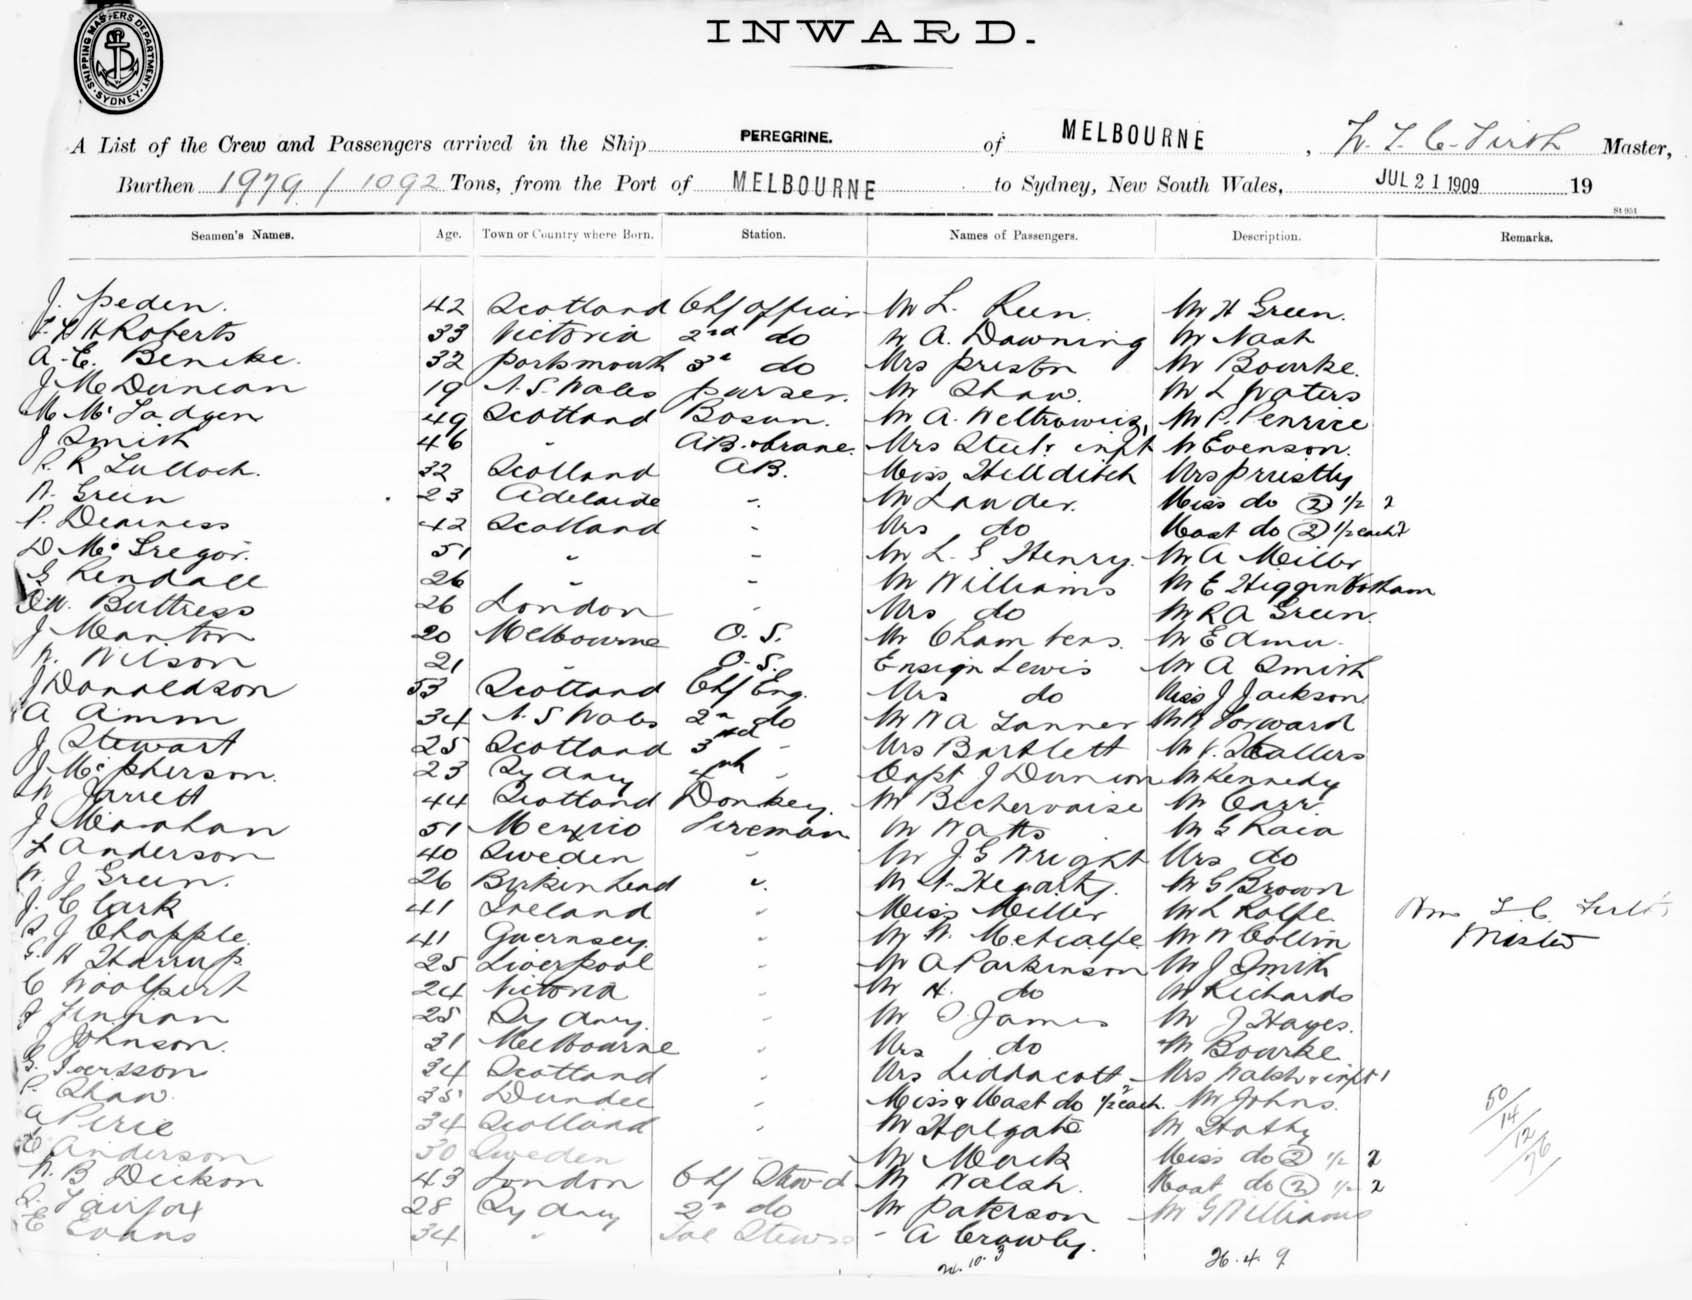 INWARD.
SHIPPING MASTERS DEPARTMENT SYDNEY
A List of the Crew and Passengers arrived in the Ship PEREGRINE. of MELBOURNE, Master,
Burthen 1979 / 1092 Tons, from the Port of MELBOURNE to Sydney, New South Wales, JUL 21 1909 19
St 951
Seamen's Names. Age. Town or Country where Born. Station. Names of Passengers. Description. Remarks.
J. Peden. 42 Scotland Chf Officer Mr L. Reen. Mr H Green.
Roberts 33 Victoria 2nd do A. Downing Mr Nash
A. E. Beneke. 32 Portsmouth 3d do Mrs Preston Mr Bourke.
J Mc Duncan 19 N.S. Wales Purser. Mr Shaw. Mr L Waters
M Mc Fadyen 49 Scotland Bosun. Mr A. Weltrowicz, Mr P. Penrice
J Smith 46 " AB. & crane. Mrs Steel & inft Mr Evenson.
R Tulloch. 32 Scotland AB. Miss Hillditch Mrs Priestly
W. Green 23 Adelaide " Mr Lauder. Miss do (2) 1/2 2
P. Deainess 42 Scotland " Mrs do Mast do (2) 1/2 each 2
D McGregor. 51 " " Mr L. G Henry. Mr A Miller
G Kendall 26 " " Mr Williams Mr E Higginbotham
Buttress 26 London " Mrs do Mr R A Green.
J Manton 20 Melbourne O.S. Mr Chambers. Mr Edmu.
W. Wilson 21 " O.S. Ensign Lewis Mr A Smith
J Donaldson 53 Scotland Chf Eng. Mrs do Miss J Jackson
A Amm 34 N.S Wales 2n do Mr W A Lanner Mr W Forward
J Stewart 25 Scotland 3rd " Mrs Bartlett Mr V.
J McPherson. 23 Sydney 4th " Capt J Duncan Mr Kennedy
W Jarrett 44 Scotland Donkey. Mr Bechervaise Mr Carr.
J Monahan 51 Mexico Fireman Mr Watts Mr G Raia
L Anderson 40 Sweden " Mr J. G Wright Mrs do
W. J Green. 26 Birkenhead " Mr Hegarty. Mr G Brown
J. Clark 41 Ireland " Miss Miller Mr L Rolfe Wm
S J Chapple. 41 Guernsey. " Mr W. Metcalfe Mr W Collin Master
G. H Harrup 25 Liverpool " Mr A Parkinson Mr J Smith
C Woolpert 24 Victoria " Mr H. do Mr Richards
J Finnan 25 Sydney. " Mr James Mr J Hayes.
J Johnson. 31 Melbourne " Mrs do Mr Bourke
G. Iversson 34 Scotland " Mrs Liddacott Mrs Walsh & inft 1
P. Shaw. 35 Dundee " Miss & Mast do 1/2 each. 2 Mr Johns. 50/14/12/76
A Pirie 34 Scotland " Mr Holgate Mr Hathy
Anderson 30 Sweden " Mr Mack Miss do (2) 1/2 2
W. B Dickson 43 London Chf Stewd Mr Walsh. Mast do (2) 1/2 2
Fairfax 28 Sydney 2n do Mr Paterson Mr G Williams
E Evans 34 " Sal Stews A Crowley.
26. 4. 9